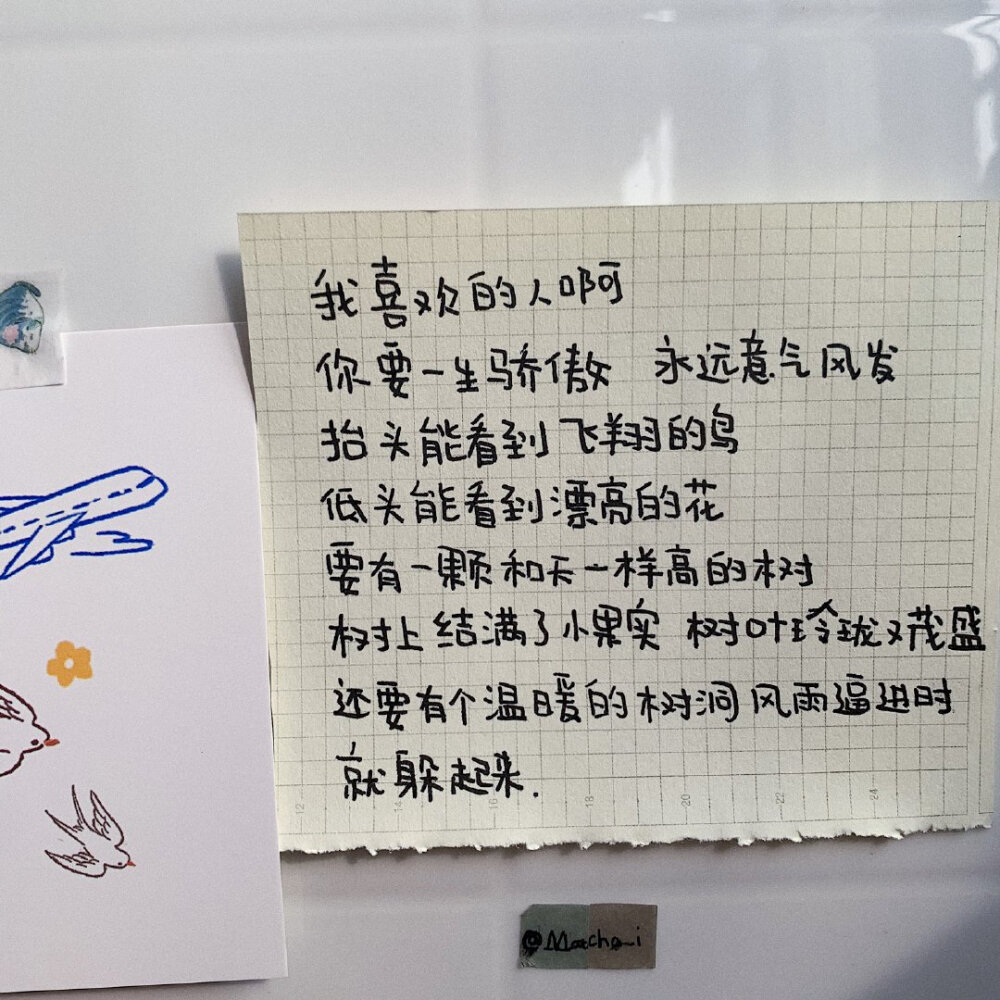 我喜欢的人啊
你要一生骄傲 永远意气风发
抬头能看到飞翔的鸟
低头能看到漂亮的花
要有一颗和天一样高的树
树上结满了小果实 树叶玲珑又茂盛
还要有个温暖的树洞风雨逼进时
就躲起来.
12 14 16 18 20 22 24